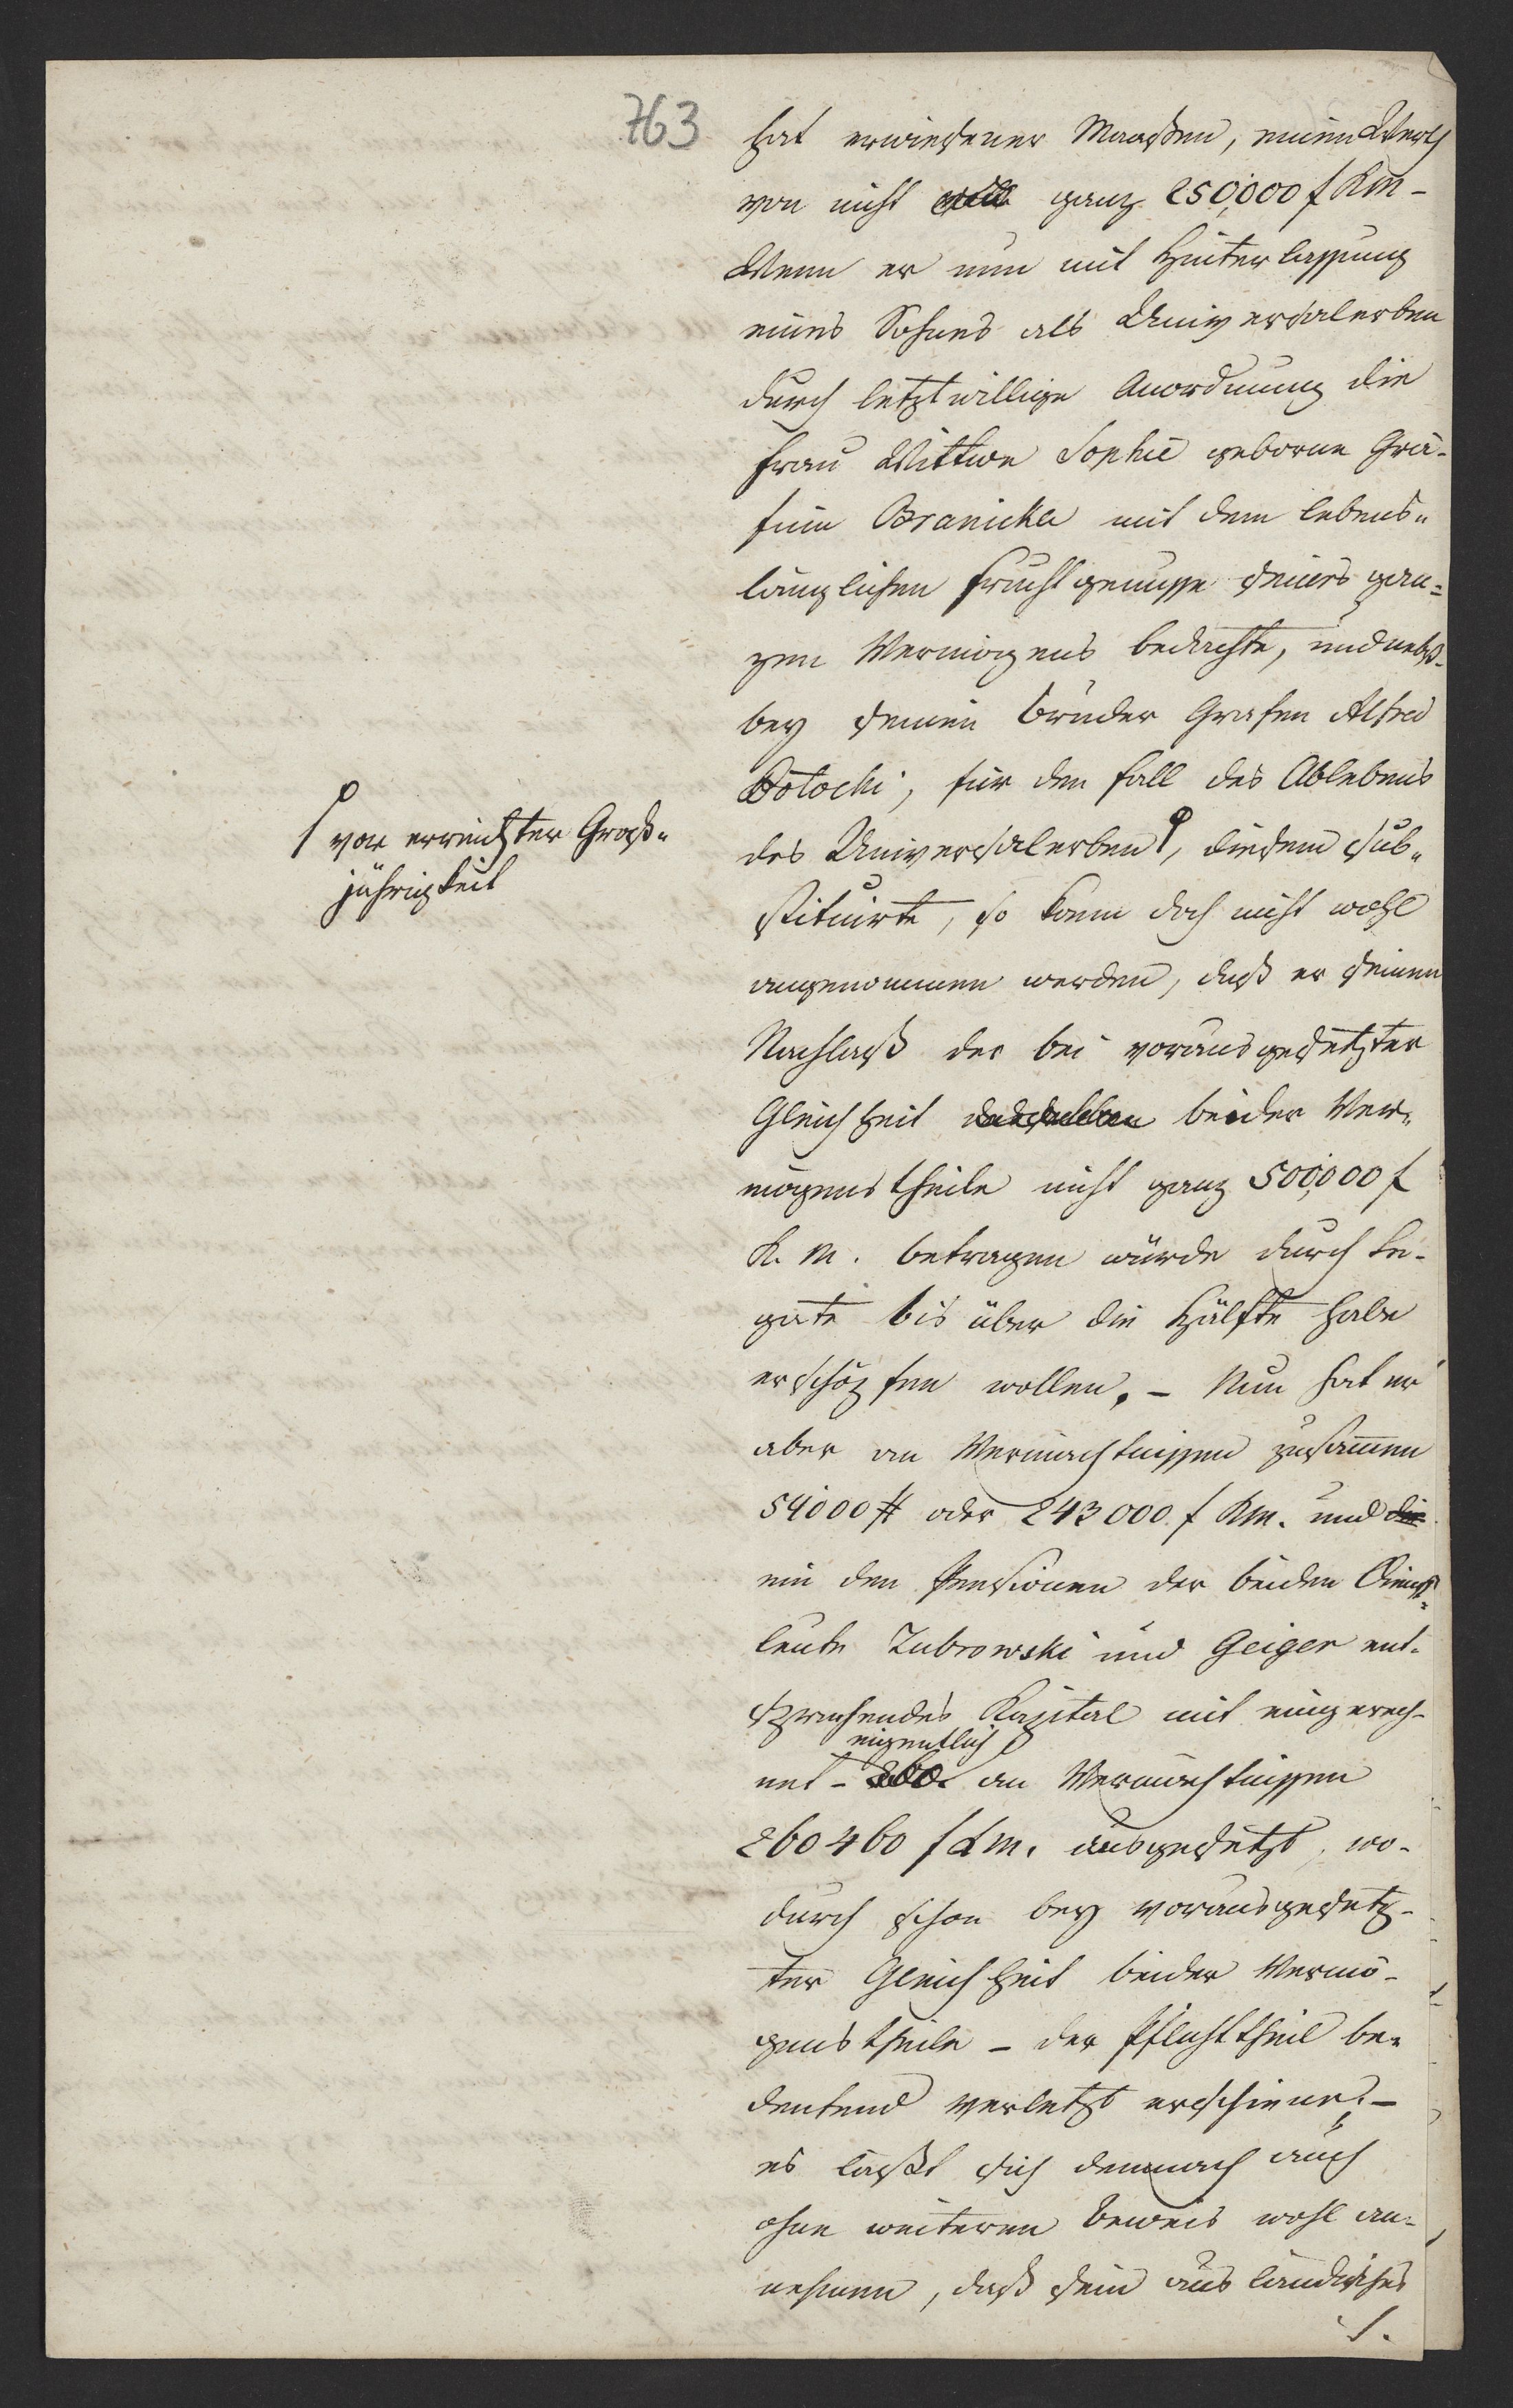 763
hat erwiesener Maaßen, einen Werth
von nicht ganz 250,000 f KM –
Wenn er nun mit Hinterlassung
eines Sohnes als Universalerben
durch letztwillige Anordnung die
Frau Wittwe Sophie geborne Grä-
finn Branicka mit dem lebens-
länglichen Fruchtgenusse seines gan-
zen Vermögens bedachte, und nebst-
bey seinem Bruder Grafen Alfred
Potocki, für den Fall des Ablebens
des Universalerben, diesem sub-
stituirte, so kann doch nicht wohl
angenommen werden, daß er seinen
Nachlaß der bei vorausgesetzter
Gleichheit desselben beider Ver-
mögenstheile nicht ganz 500,000 f
K. M. betragen würde durch Le-
gate bis über die Hälfte habe
erschöpfen wollen. – Nun hat er
aber an Vermächtnissen zusammen
54000 # oder 243000 f KM. und die
ein den Pensionen der beiden Dienst-
leute Zubrowski und Geiger ent-
sprechendes Kapital mit eingerech-
eigentlich
net – an Vermächtnissen
260460 f KM. ausgesetzt, wo-
durch schon bey vorausgesetz-
ter Gleichheit beider Vermö-
genstheile – der Pflichttheil be-
deutend verletzt erschiene; –
es läßt sich demnach auch
ohne weiteren Beweis wohl an-
nehmen, daß sein ausländisches
/.
vor erreichter Groß-
jährigkeit